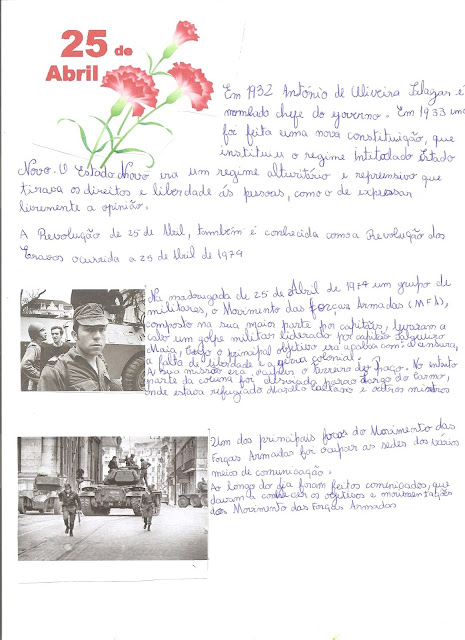 25 de
Abril
Em 1932 António de Oliveira Salazar é
nomeado chefe do governo. Em 1933 uma
foi feita uma nova constituição, que
instituiu o regime intetolado Estado
Novo. O Estado Novo era um regime alturitório e repreensivo que
tirava os direitos e liberdade ás pessoas, como o de expressar
livremente a opinião.
A Revolução de 25 de Abril, também é conhecida como a Revolução dos
Cravos ocurrida a 25 de Abril de 1974
Na madrugada de 25 de Abril de 1974 um grupo de
militares, o Movimento das Forças Armadas (MFA),
composto na sua maior parte por capitães, levaram a
cabo um golpe militar liderado por capitão Salgueiro
Maia, o principal objetivo era acabar com: a censura,
a falta de liberdade e a guerra colonial.
A sua missão era ocupar o Terreiro do Paço. No entanto
parte da coluna foi desviada para o Largo do Carmo,
onde estava refugiado Marcelo Caetano e outros ministros
Um dos principais focos do Movimento das
Forças Armadas foi ocupar as sedes dos vários
meios de comunicação.
Ao longo do dia foram feitos comunicados, que
davam a conhecer os objetivos e movimentações
dos Movimento das Forças Armadas